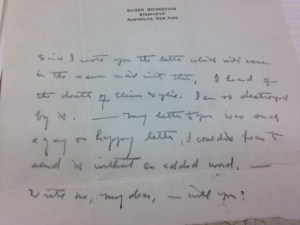 EUGEN BOISSEVAIN
STEEPLETOP
AUSTERLITZ, NEW YORK
Since I wrote you the letter which will come
in the same mail with this, I heard of
the death of Elinor Wylie. I am so destroyed
by it. — My letter to you was such
a gay or happy letter, I couldn't bear to
send it without an added word. —
Write me, my dear, — will you?